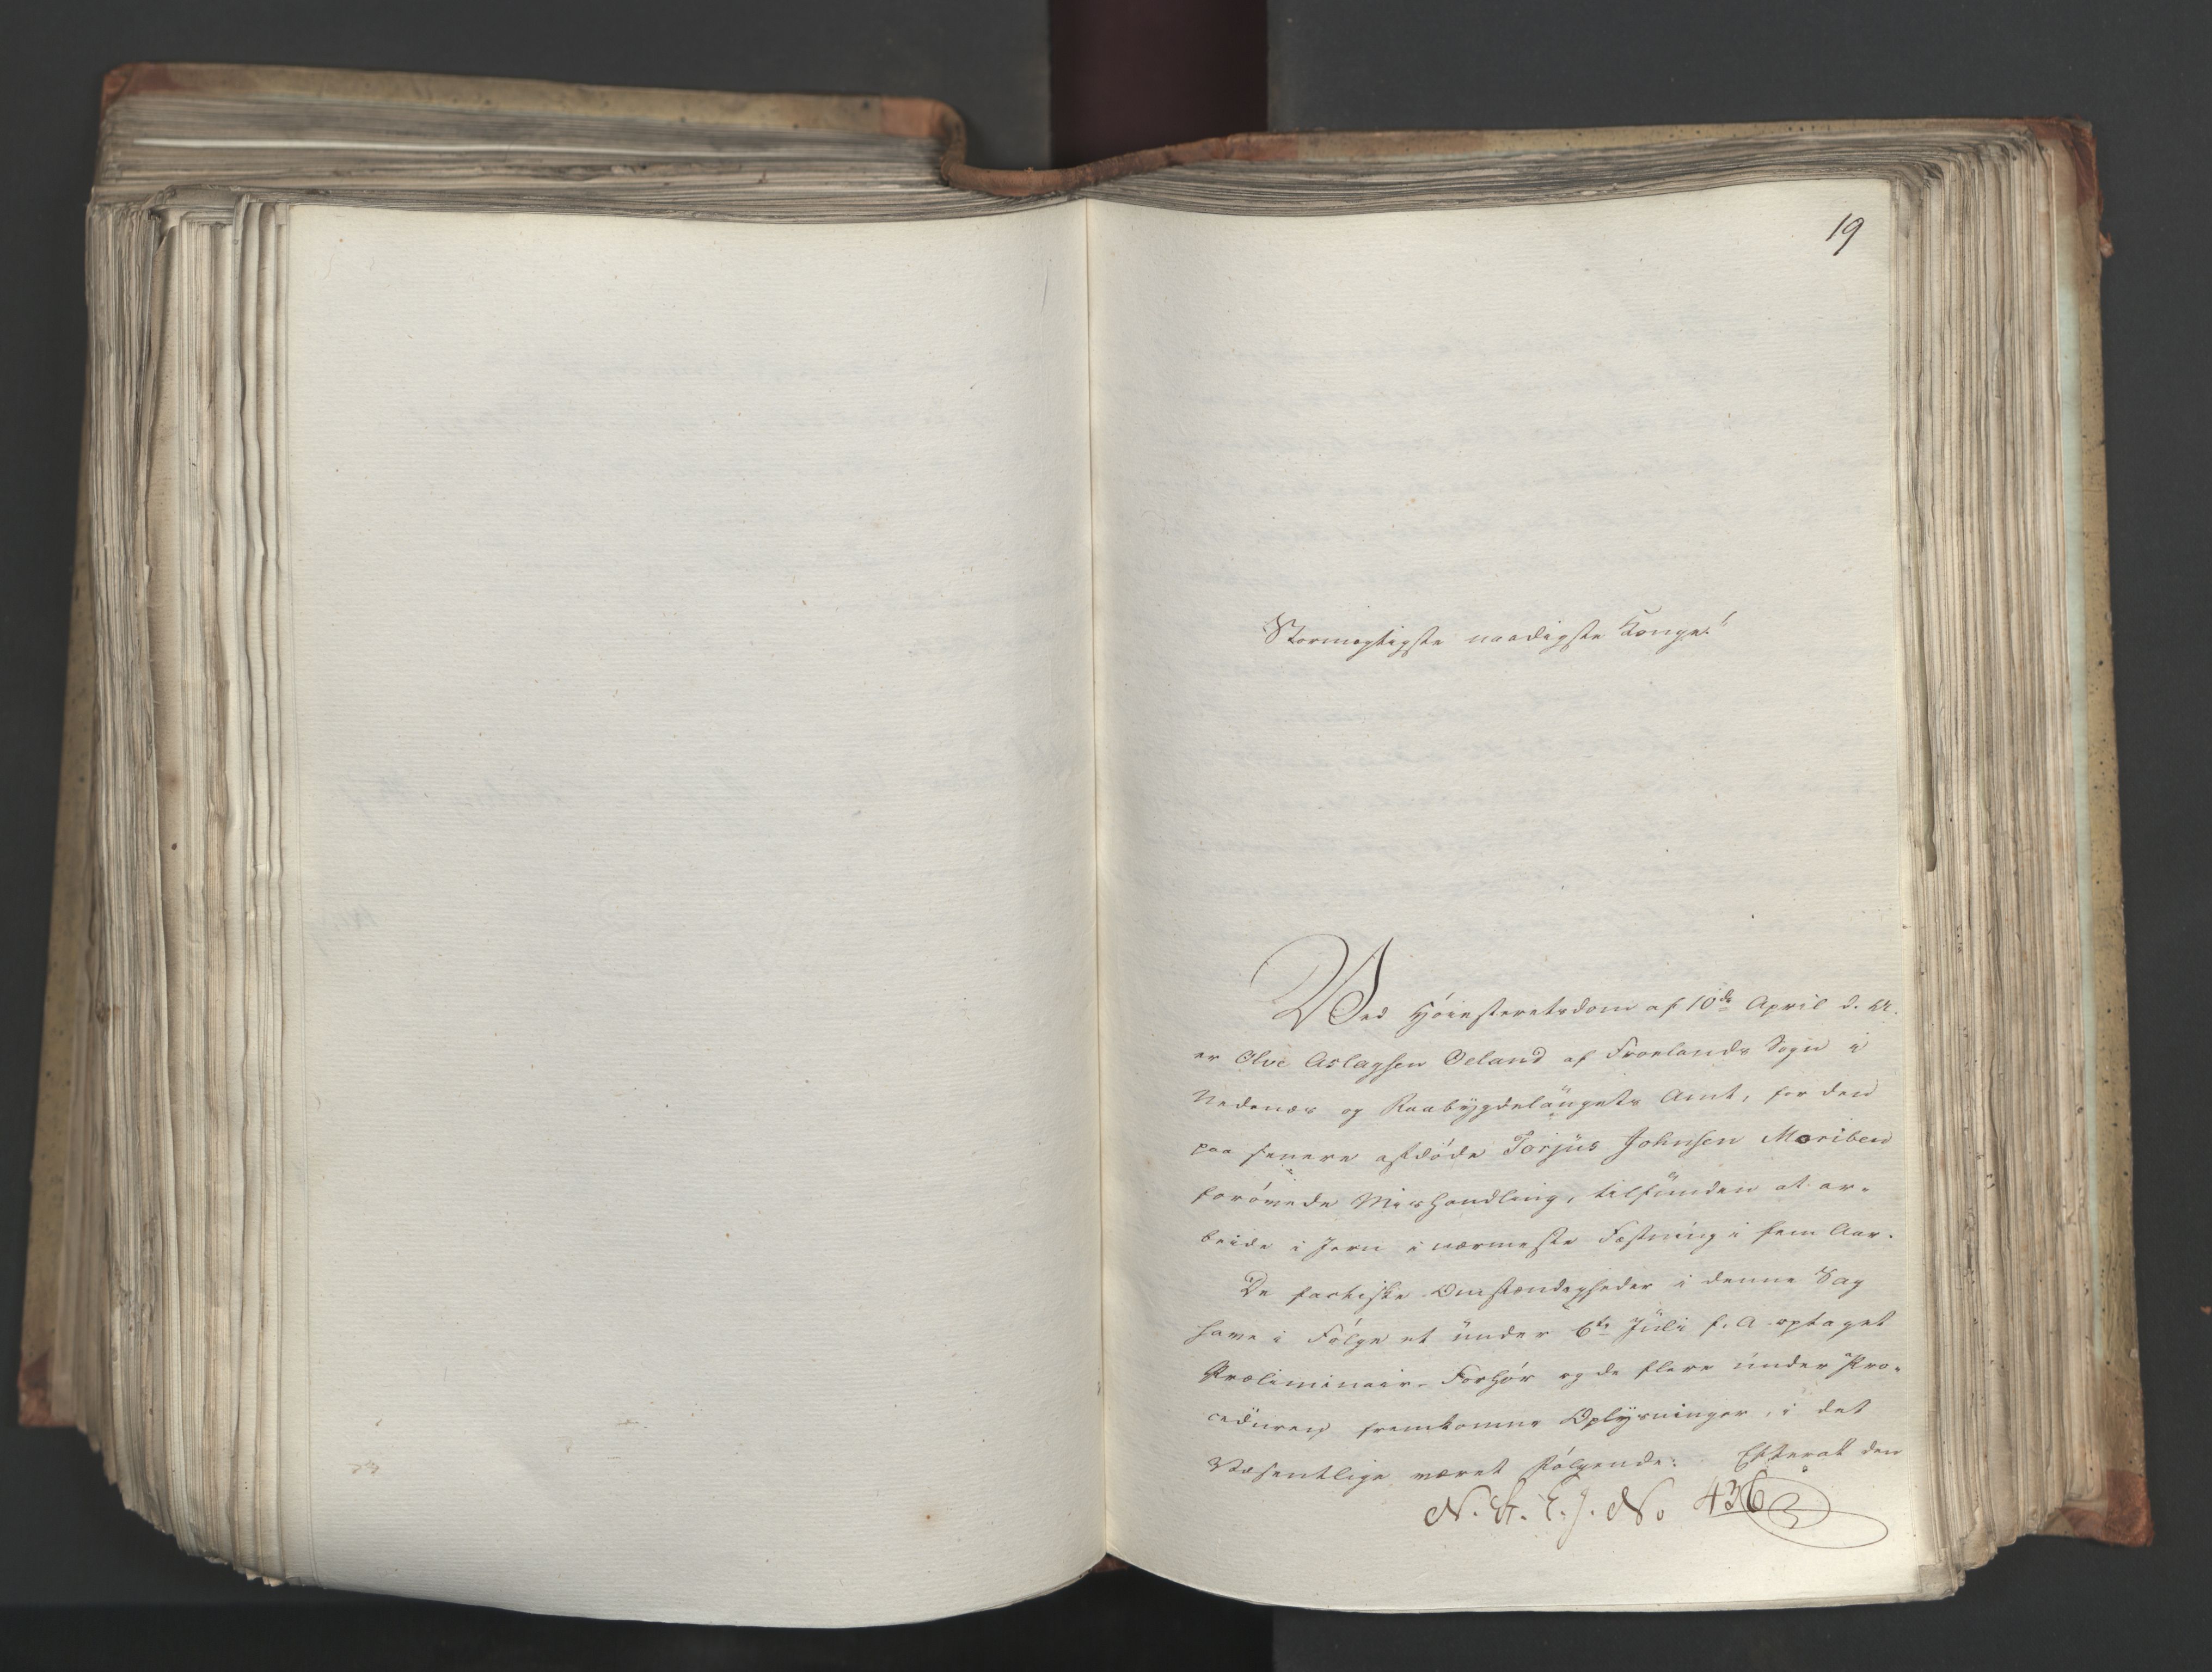 19
Stormægtigste naadigste Konge!
Ved Høiesteretsdom af 10de April d. A.
er Olve Aslagsen Oeland af Froelands Sogn i
Nedenæs og Raabygdelaugets Amt, for den
paa senere afdøde Torjus Johnsen Moriben
forøvede Mishandling, tilfunden at ar-
beide i Jern i nærmeste Fæstning i fem Aar.
De factiske Omstændigheder i denne Sag
have i Følge et under 6te Juli f. A. optaget
Præliminair-Forhør og de flere under Pro-
ceduren fremkomne Oplysninger, i det
Væsentlige været følgende: Efterat den
No 436